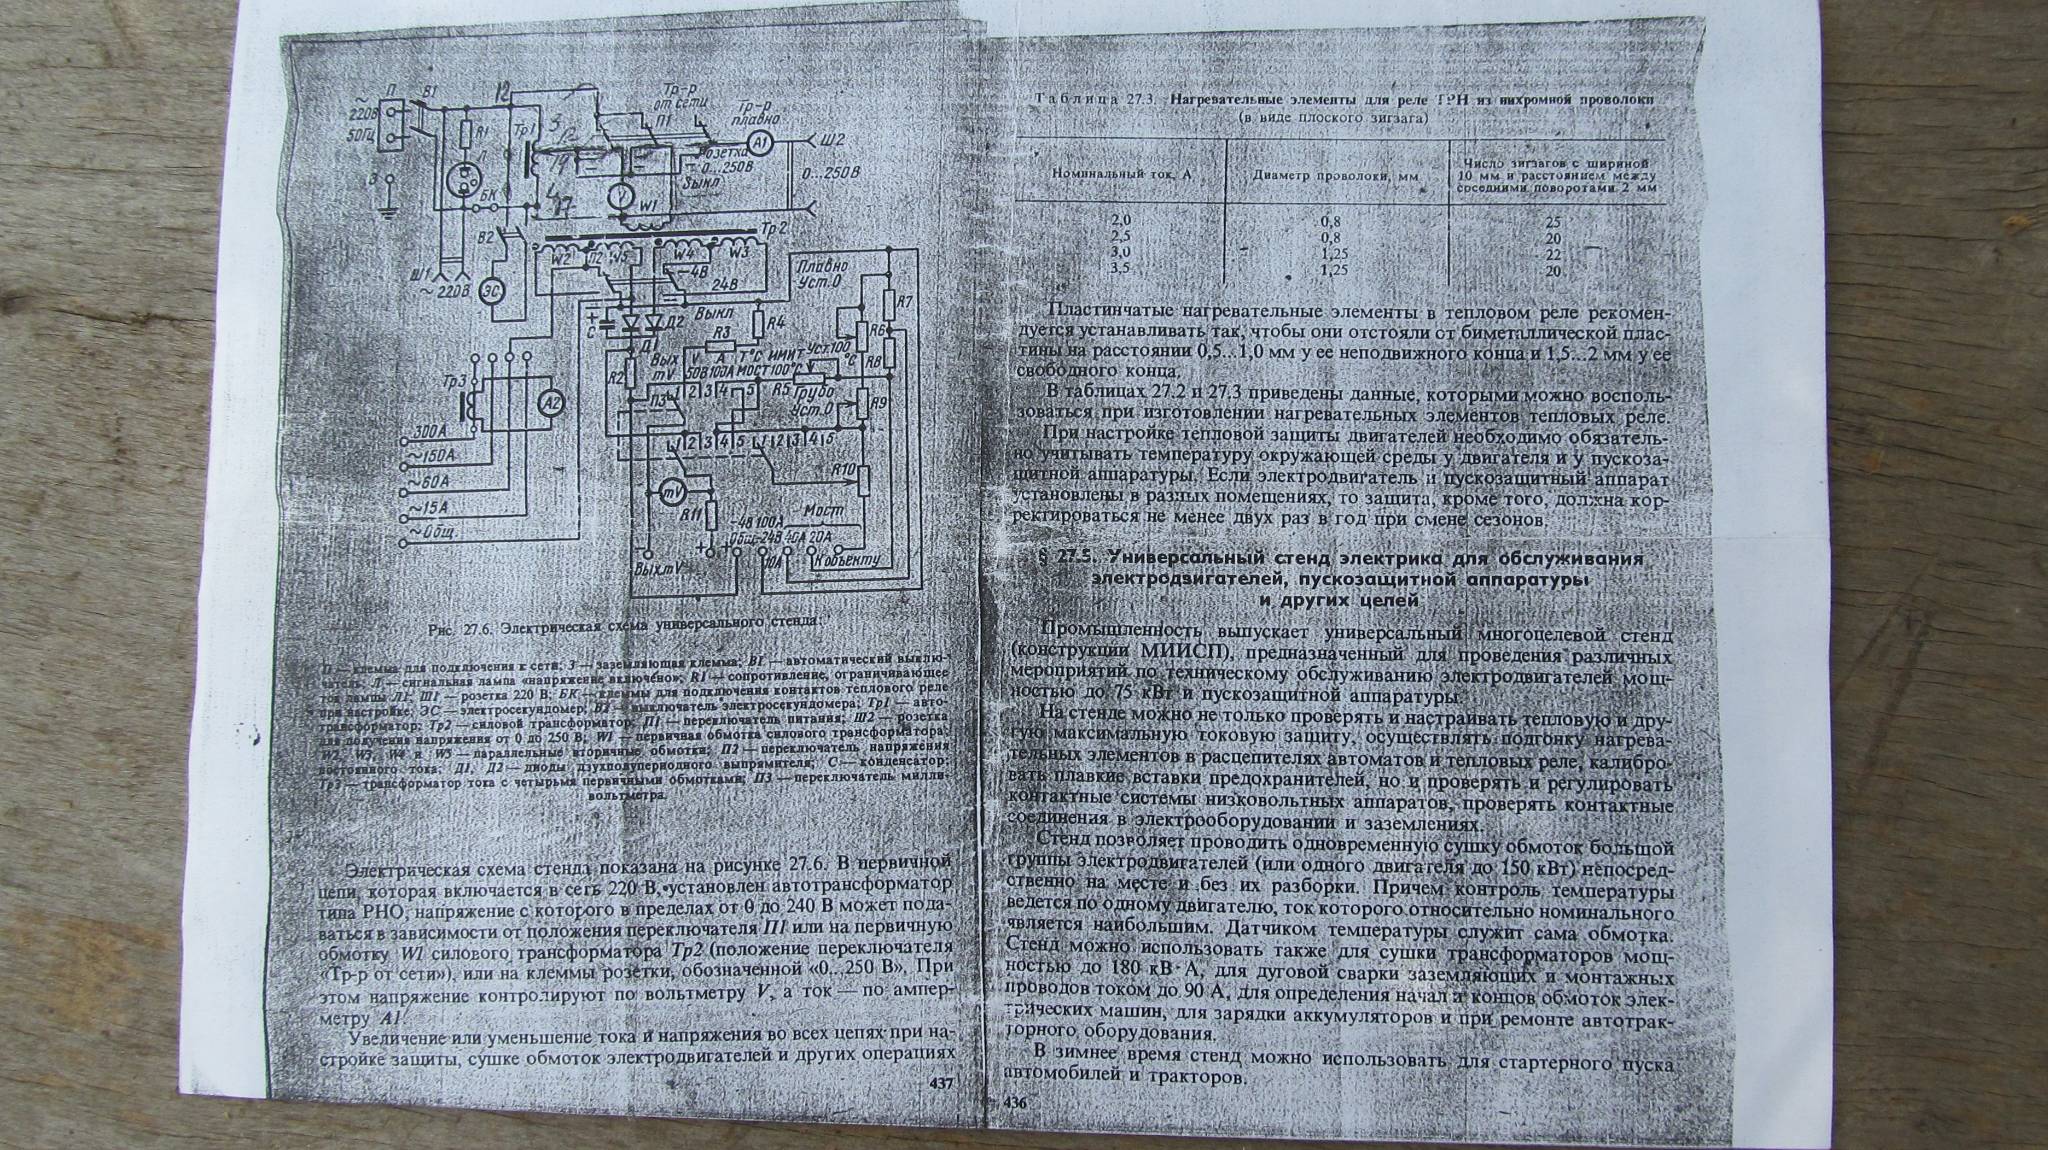 П
В1
12
Тр-р
от сети
Тр-р
плавно
~
220В
50Гц
R1
Тр1
П1
А1
Ш2
Л
Розетка
0...250В
Выкл
0...250В
З
БК
V
W1
17
В2
Тр2
W2
П2
W5
W4
W3
Ш1
~ 220В
ЭС
−4В
24В
Плавно
Уст.0
+
С
Д1
Д2
Выкл
R3
R4
R7
R6
R8
Вых
mV
V
50В
А
100А
Т°С
МОСТ
ИМИТ
100°С
Уст.100
°С
R2
Тр3
А2
П3
1 2 3 4 5
R5
Грубо
Уст.0
R9
300А
~150А
~60А
~15А
~Общ.
1 2 3 4 5 1 2 3 4 5
R10
mV
R11
Мост
−4В 100А
Общ −24В 40А 20А
− + +
Вых.mV
10А
К объекту
Рис. 27.6. Электрическая схема универсального стенда:
П — клемма для подключения к сети; З — заземляющая клемма; В1 — автоматический выклю-
чатель; Л — сигнальная лампа «напряжение включено»; R1 — сопротивление, ограничивающее
ток лампы Л1; Ш1 — розетка 220 В; БК — клеммы для подключения контактов теплового реле
при настройке; ЭС — электросекундомер; В2 — выключатель электросекундомера; Тр1 — авто-
трансформатор; Тр2 — силовой трансформатор; П1 — переключатель питания; Ш2 — розетка
для получения напряжения от 0 до 250 В; W1 — первичная обмотка силового трансформатора;
W2, W3, W4 и W5 — параллельные вторичные обмотки; П2 — переключатель напряжения
постоянного тока; Д1, Д2 — диоды двухполупериодного выпрямителя; С — конденсатор;
Тр3 — трансформатор тока с четырьмя первичными обмотками; П3 — переключатель милли-
вольтметра.
Электрическая схема стенда показана на рисунке 27.6. В первичной
цепи, которая включается в сеть 220 В, установлен автотрансформатор
типа РНО, напряжение с которого в пределах от 0 до 240 В может пода-
ваться в зависимости от положения переключателя П1 или на первичную
обмотку W1 силового трансформатора Тр2 (положение переключателя
«Тр-р от сети»), или на клеммы розетки, обозначенной «0...250 В». При
этом напряжение контролируют по вольтметру V, а ток — по ампер-
метру А1.
Увеличение или уменьшение тока и напряжения во всех цепях при на-
стройке защиты, сушке обмоток электродвигателей и других операциях
437
Таблица 27.3. Нагревательные элементы для реле ТРН из нихромной проволоки
(в виде плоского зигзага)
Номинальный ток, А
Диаметр проволоки, мм
Число зигзагов с шириной
10 мм и расстоянием между
соседними поворотами 2 мм
2,0 0,8 25
2,5 0,8 20
3,0 1,25 22
3,5 1,25 20
Пластинчатые нагревательные элементы в тепловом реле рекомен-
дуется устанавливать так, чтобы они отстояли от биметаллической плас-
тины на расстоянии 0,5...1,0 мм у ее неподвижного конца и 1,5...2 мм у ее
свободного конца.
В таблицах 27.2 и 27.3 приведены данные, которыми можно восполь-
зоваться при изготовлении нагревательных элементов тепловых реле.
При настройке тепловой защиты двигателей необходимо обязатель-
но учитывать температуру окружающей среды у двигателя и у пускоза-
щитной аппаратуры. Если электродвигатель и пускозащитный аппарат
установлены в разных помещениях, то защита, кроме того, должна кор-
ректироваться не менее двух раз в год при смене сезонов.
§ 27.5. Универсальный стенд электрика для обслуживания
электродвигателей, пускозащитной аппаратуры
и других целей
Промышленность выпускает универсальный многоцелевой стенд
(конструкции МИИСП), предназначенный для проведения различных
мероприятий по техническому обслуживанию электродвигателей мощ-
ностью до 75 кВт и пускозащитной аппаратуры.
На стенде можно не только проверять и настраивать тепловую и дру-
гую максимальную токовую защиту, осуществлять подгонку нагрева-
тельных элементов в расцепителях автоматов и тепловых реле, калибро-
вать плавкие вставки предохранителей, но и проверять и регулировать
контактные системы низковольтных аппаратов, проверять контактные
соединения в электрооборудовании и заземлениях.
Стенд позволяет проводить одновременную сушку обмоток большой
группы электродвигателей (или одного двигателя до 150 кВт) непосред-
ственно на месте и без их разборки. Причем контроль температуры
ведется по одному двигателю, ток которого относительно номинального
является наибольшим. Датчиком температуры служит сама обмотка.
Стенд можно использовать также для сушки трансформаторов мощ-
ностью до 180 кВ·А, для дуговой сварки заземляющих и монтажных
проводов током до 90 А, для определения начал и концов обмоток элек-
трических машин, для зарядки аккумуляторов и при ремонте автотрак-
торного оборудования.
В зимнее время стенд можно использовать для стартерного пуска
автомобилей и тракторов.
436